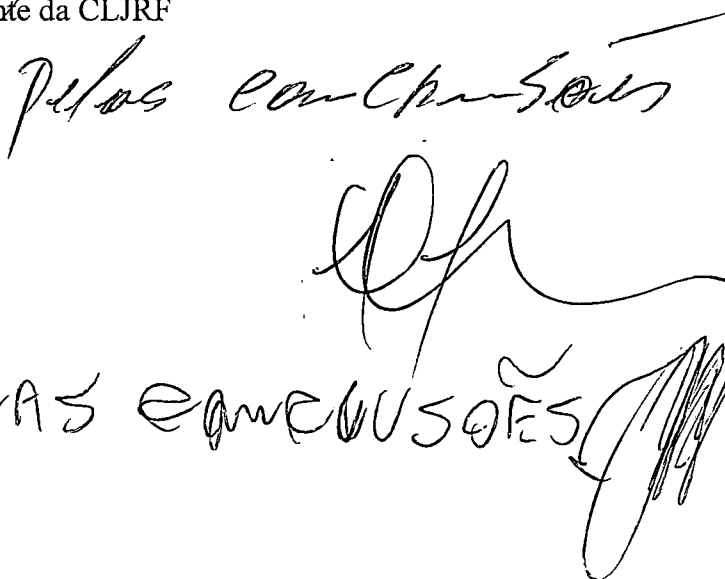 nte da CLJRF
Pelas conclusões
AS CONCLUSÕES